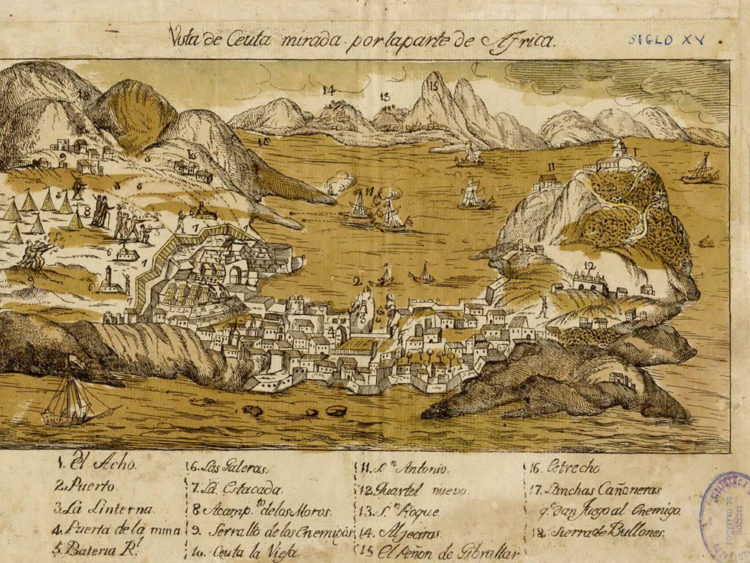 Vista de Ceuta mirada por la parte de Africa.
SIGLO XV
14
13
15
11
12
1. El Acho.
2. Puerto.
3. La Linterna
4. Puerta de la mina
5. Bateria R!
6. Las Galeras.
7. La Estacada.
8 Acamp.to de los Moros.
9 Serrallo de los Enemigos
10. Ceuta la Vieja.
11. S.n Antonio.
12. Quartel nuevo.
13. S.n Roque
14. Aljeciras.
15 El Peñon de Gibraltar
16. Estrecho
17. Lanchas Cañoneras
q.e dan fuego al Enemigo.
18. Sierra de Bullones.
BIBLIOTECA